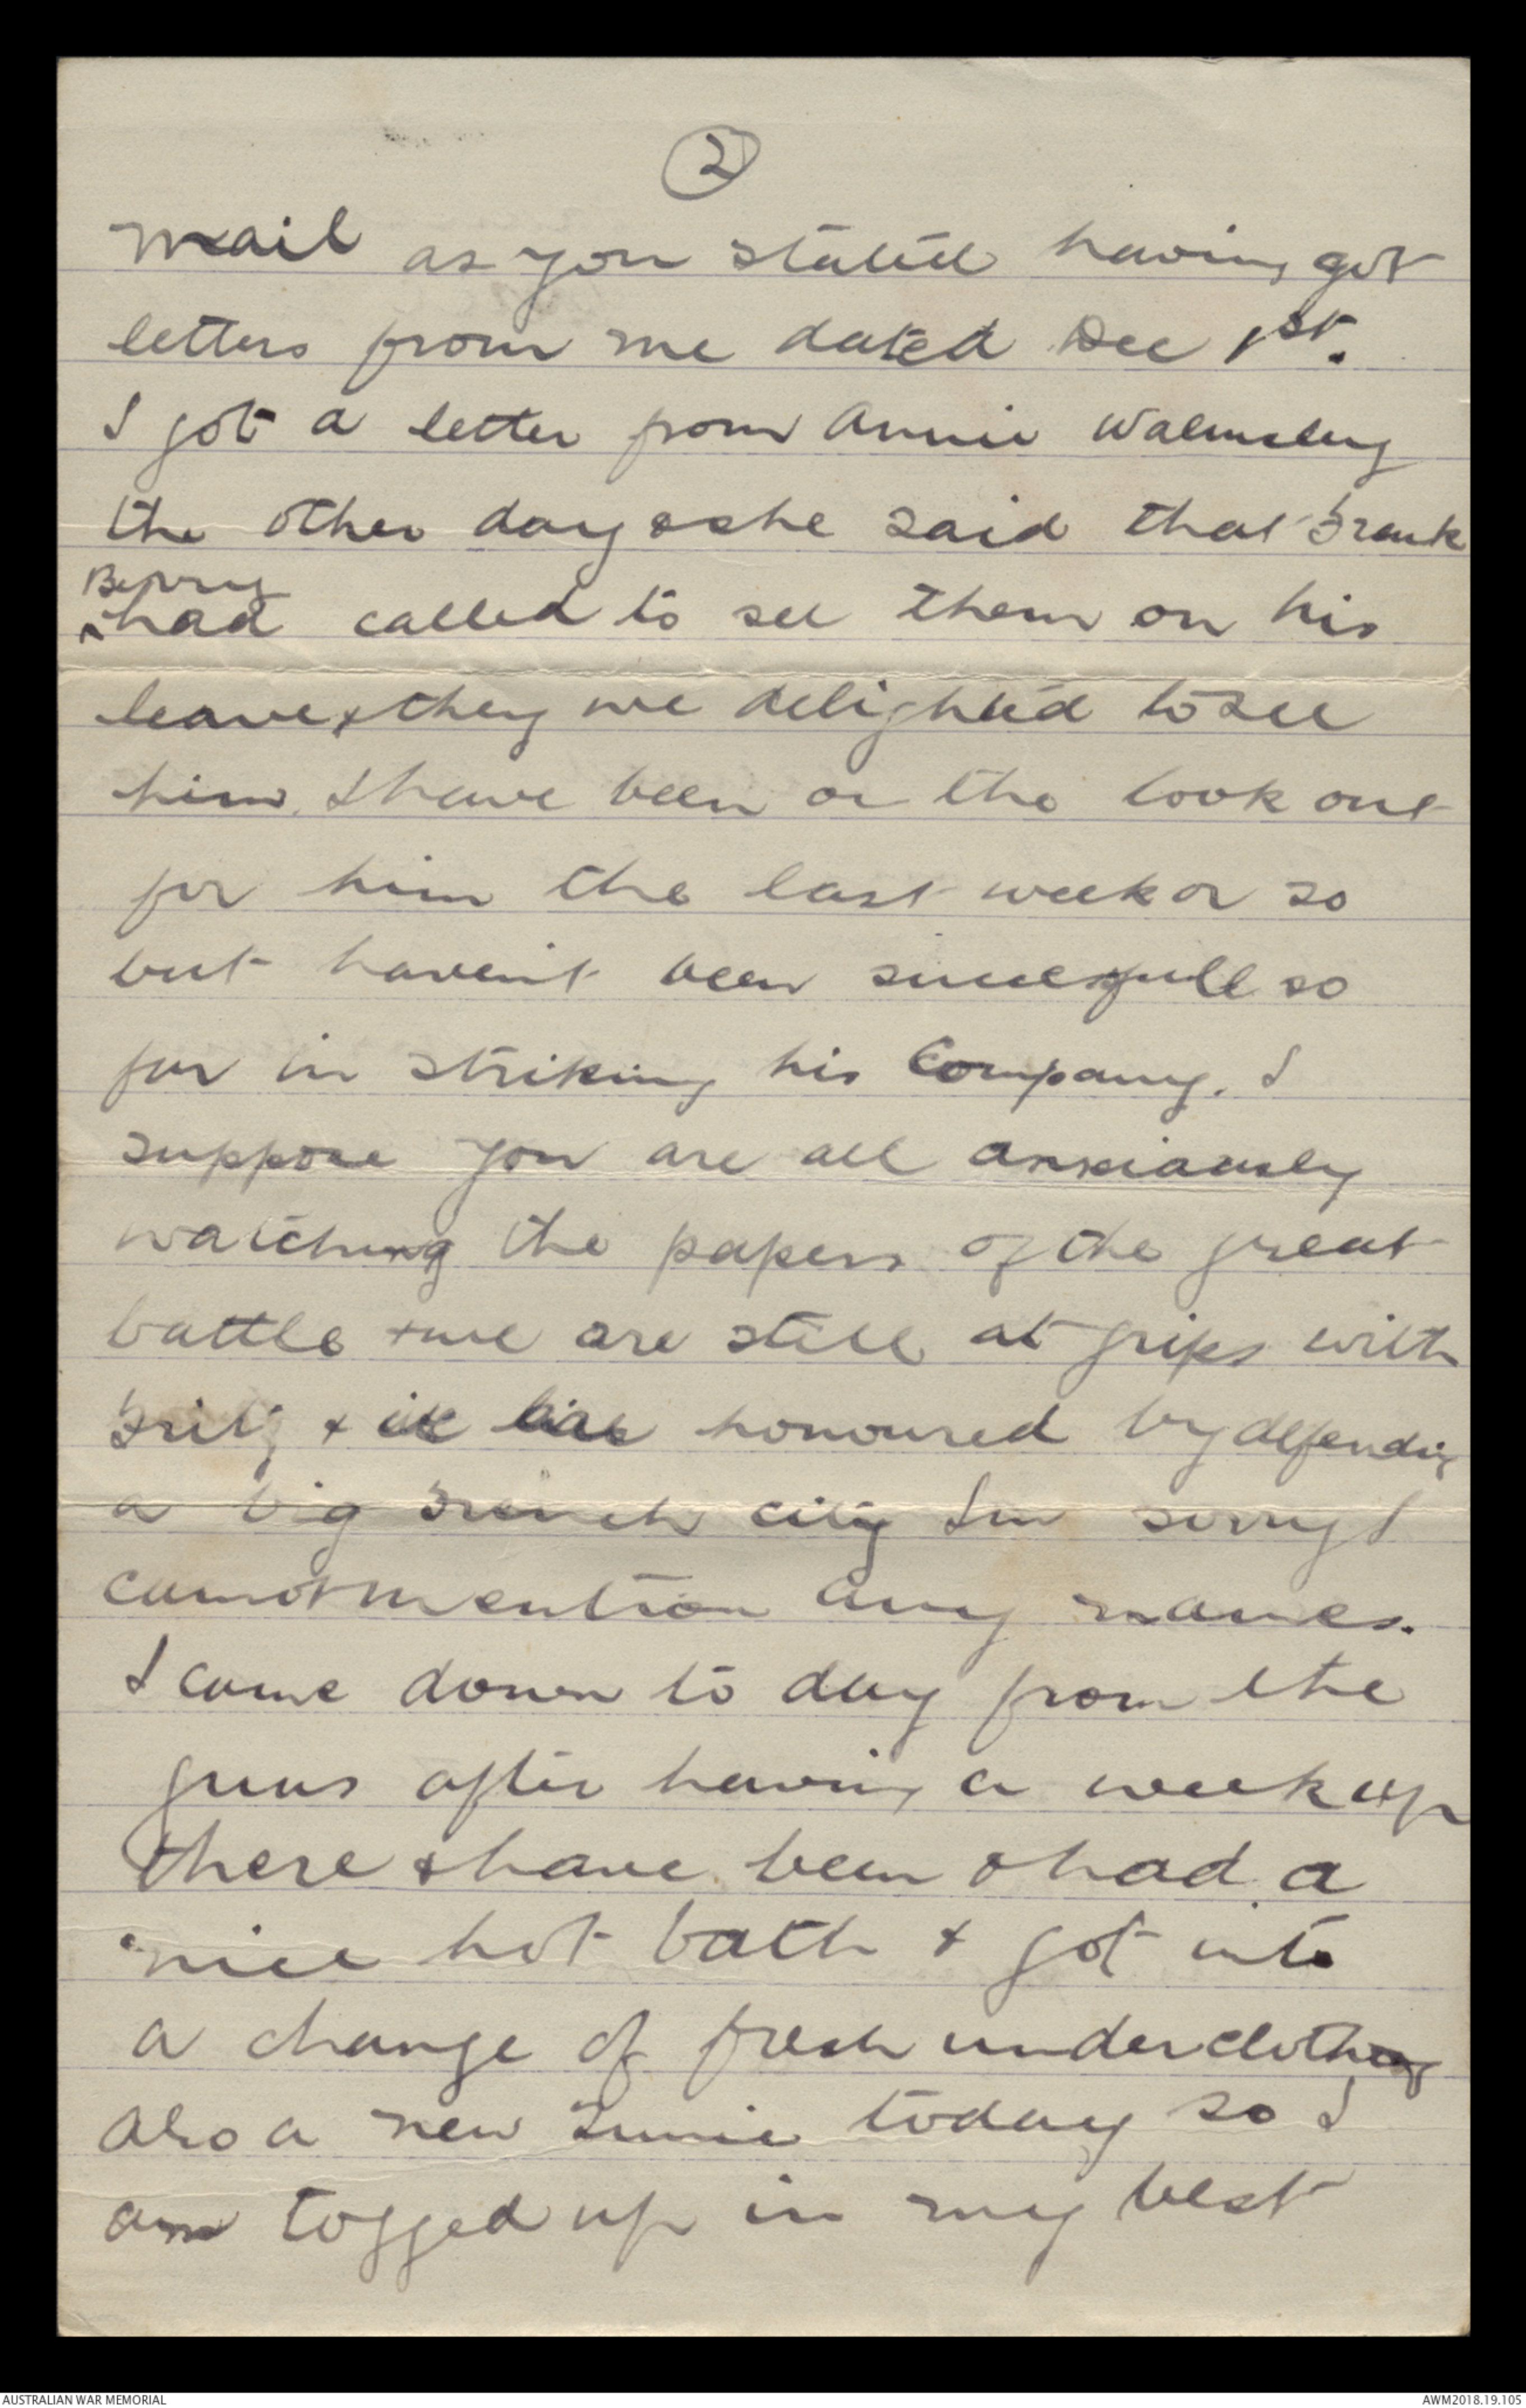 2
mail as you stated having got
letters from me dated Dec 1st.
I got a letter from Annie Walmsley
the other day & she said that Frank
Berry
^had called to see them on his
leave & they we delighted to see
him. I have been on the look out
for him the last week or so
but haven't been succesfull so
far in striking his Company. I
suppose you are all anxiously
watching the papers of the great
battle & we are still at grips with
Fritz & honoured by defending
a big French city Im sorry I
cannot mention any names.
I came down to day from the
guns after having a week up
there & have been & had a
nice hot bath & got into
a change of fresh underclothing
also a new tunic today so I
am togged up in my best
AUSTRALIAN WAR MEMORIAL
AWM2018.19.105